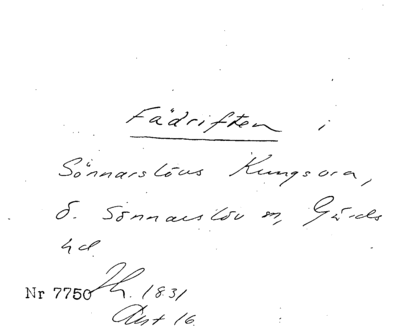 Fädriften i
Sönnarslövs Kungsora,
Ö. Sönnarslöv sn, Gärds
hd.
Nr 7750 Jh. 1831
Avst 16.